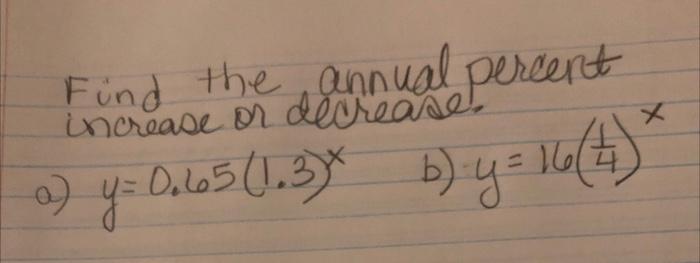 Find the annual percent
increase or decrease.
a) y = 0.65(1.3)^x b) y = 16(1/4)^x